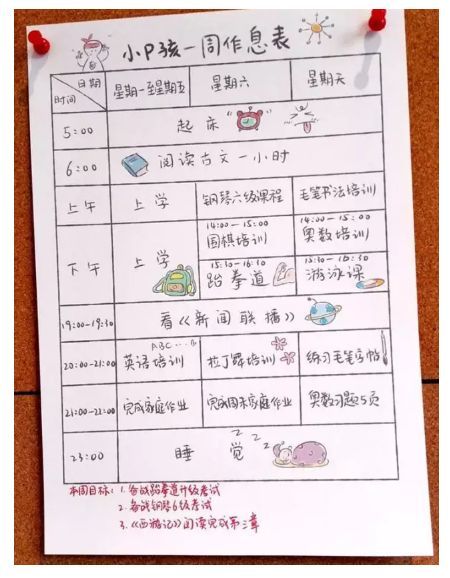 小P孩一周作息表
日期
时间
星期一至星期五 星期六 星期天
5:00 起床
6:00 阅读古文一小时
上午 上学 钢琴六级课程 毛笔书法培训
下午 上学
14:00—15:00 14:00—15:00
围棋培训 奥数培训
15:30—16:30 15:30—16:30
跆拳道 游泳课
19:00-19:30 看《新闻联播》
ABC
20:00-21:00 英语培训 拉丁舞培训 练习毛笔字帖
21:00-22:00 完成家庭作业 完成周末家庭作业 奥数习题5页
23:00 睡觉 z z z
本周目标: 1. 备战跆拳道升级考试
2. 备战钢琴6级考试
3.《西游记》阅读完成第三章